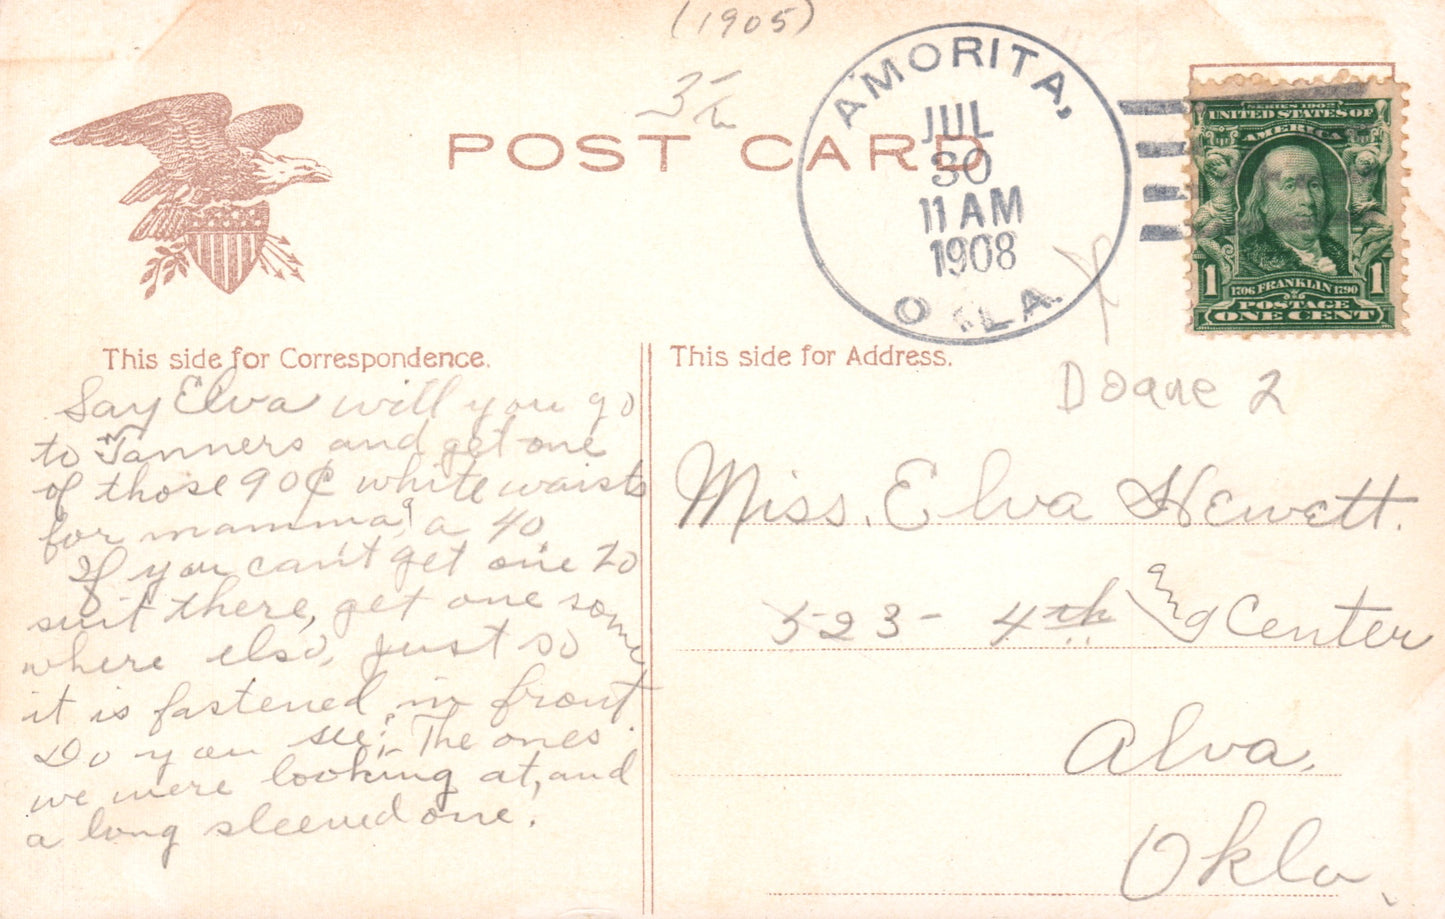 (1905)
POST CARD
AMORITA,
JUL
30
11 AM
1908
OKLA.
SERIES 1902
UNITED STATES OF
AMERICA
1
1706 FRANKLIN 1790
POSTAGE
ONE CENT
This side for Correspondence.
Say Elva will you go
to Tanners and get one
of those 90¢ white waists
for mamma, a 40.
If you can't get one to
suit there, get one some
where else, just so
it is fastened in front.
Do you see? The ones
we were looking at, and
a long sleeved one.
This side for Address.
Doane 2
Miss. Elva Hewett.
523- 4th and Center
Alva,
Okla.